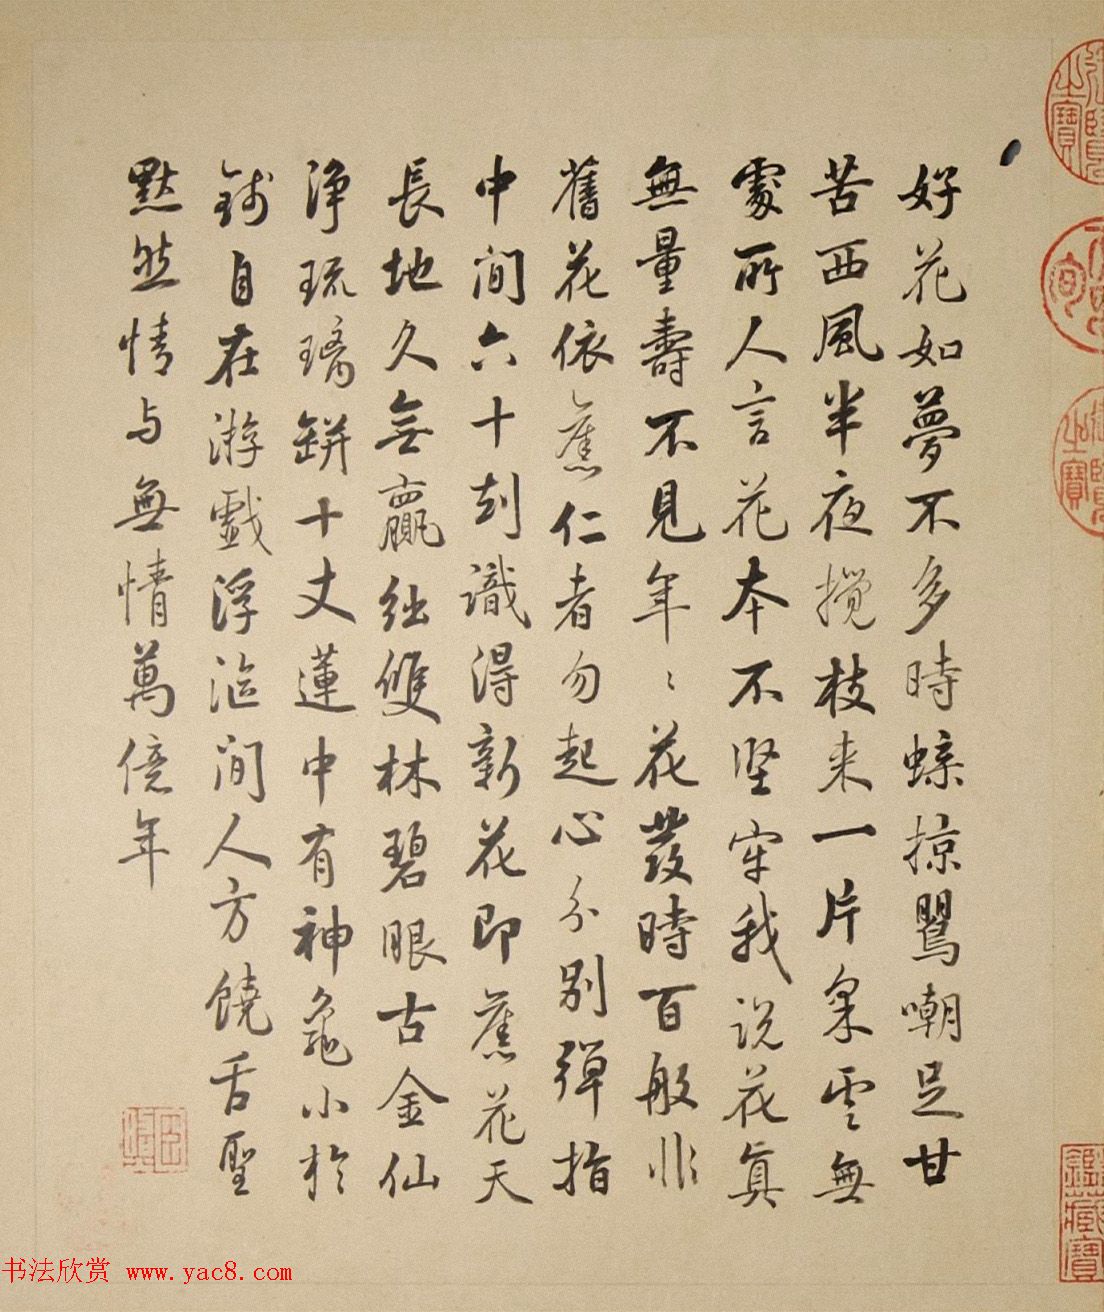 好花如夢不多時蜂掠鸎嘲足甘
苦西風半夜攪枝来一片采雲無
處所人言花本不堅牢我説花真
無量壽不見年〻花發時百般非
舊花依舊仁者勿起心分別彈指
中間六十刧識得新花即舊花天
長地久無贏絀雙林碧眼古金仙
淨琉璃缾十丈蓮中有神龜小於
錢自在游戲浮漚間人方饒舌聖
默然情与無情萬億年
书法欣赏 www.yac8.com